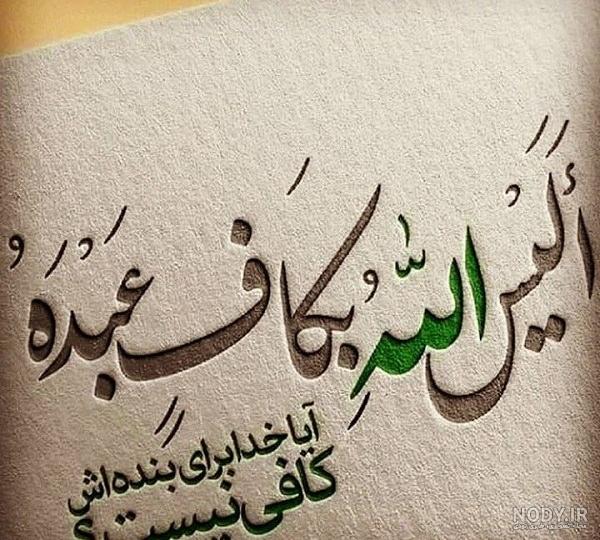 أَلَيْسَ اللّهُ بِكَافٍ عَبْدَهُ
آیا خدا برای بنده‌اش
کافی نیست؟
NODY.IR